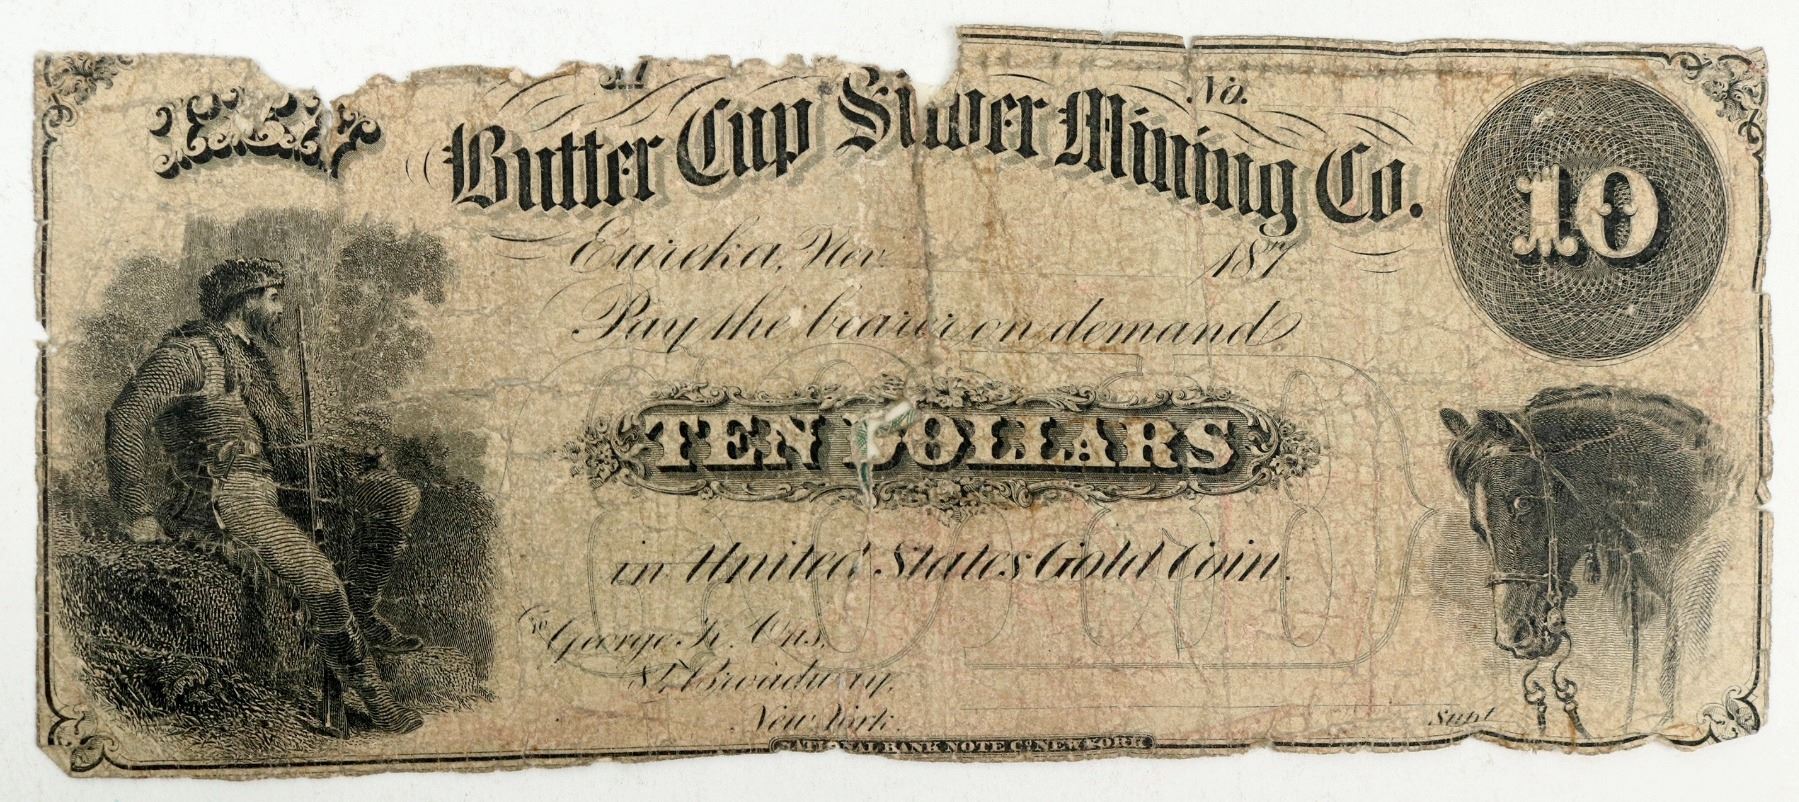 No.
Butter Cup Silver Mining Co.
10
Eureka, Nev. 187
Pay the bearer on demand
TEN DOLLARS
in United States Gold Coin.
GOLD
COIN
To George
Broadway,
New York.
Supt
NATIONAL BANK NOTE Co. NEW YORK